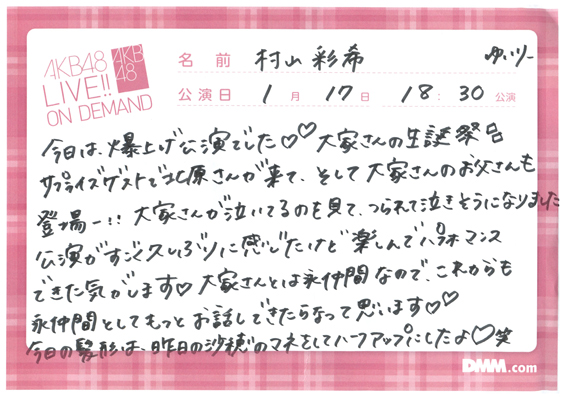 AKB48
LIVE!!
ON DEMAND
AKB
48
名 前 村山 彩希 ゆいりー
公演日 1月 17日 18:30公演
今日は、爆上げ公演でした♡♡大家さんの生誕祭⚪︎
サプライズゲストで北原さんが来て、そして大家さんのお父さんも
登場ー!! 大家さんが泣いてるのを見て、つられて泣きそうになりました
公演がすごく久しぶりに感じたけど楽しんでパフォーマンス
できた気がします♡大家さんとは永仲間なので、これからも
永仲間としてもっとお話しできたらなって思います♡♡
今日の髪形は、昨日の沙穂のマネをしてハーフアップにしたよ♡笑
DMM.com